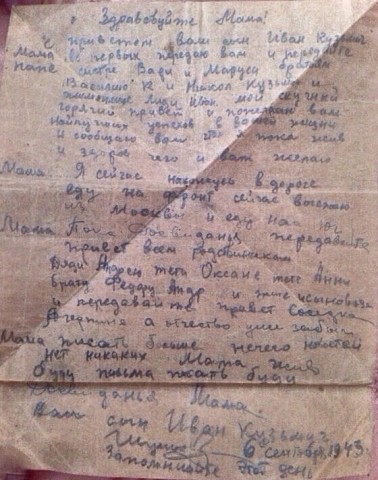 Здравствуйте Мама!
с приветом вам сын Иван Кузьмич
Мама во первых передаю вам и передайте
папе сестре Вари и Маруси братьям
Василию К и Никол Кузьмич и
Иван мой скучный
горячий привет и пожелаю вам
наилучших успехов в вашей жизни
и сообщаю вам что я пока жив
и здоров чего и вам желаю
Мама Я сейчас нахожусь в дороге
еду на фронт сейчас выезжаю
из Москвы и еду на юг
Мама Пока Досвидания передавайте
привет всем родственикам
Дяди Андрею тети Оксане тете Анни
брату Федору
и передавайте привет Соседка
а отчество уже забыл
Мама писать больше нечего новостей
нет никаких Мама жив
буду письма писать буду
Досвиданья Мама
Ваш
сын Иван Кузьмич
6 сентября 1943
Запомните этот день